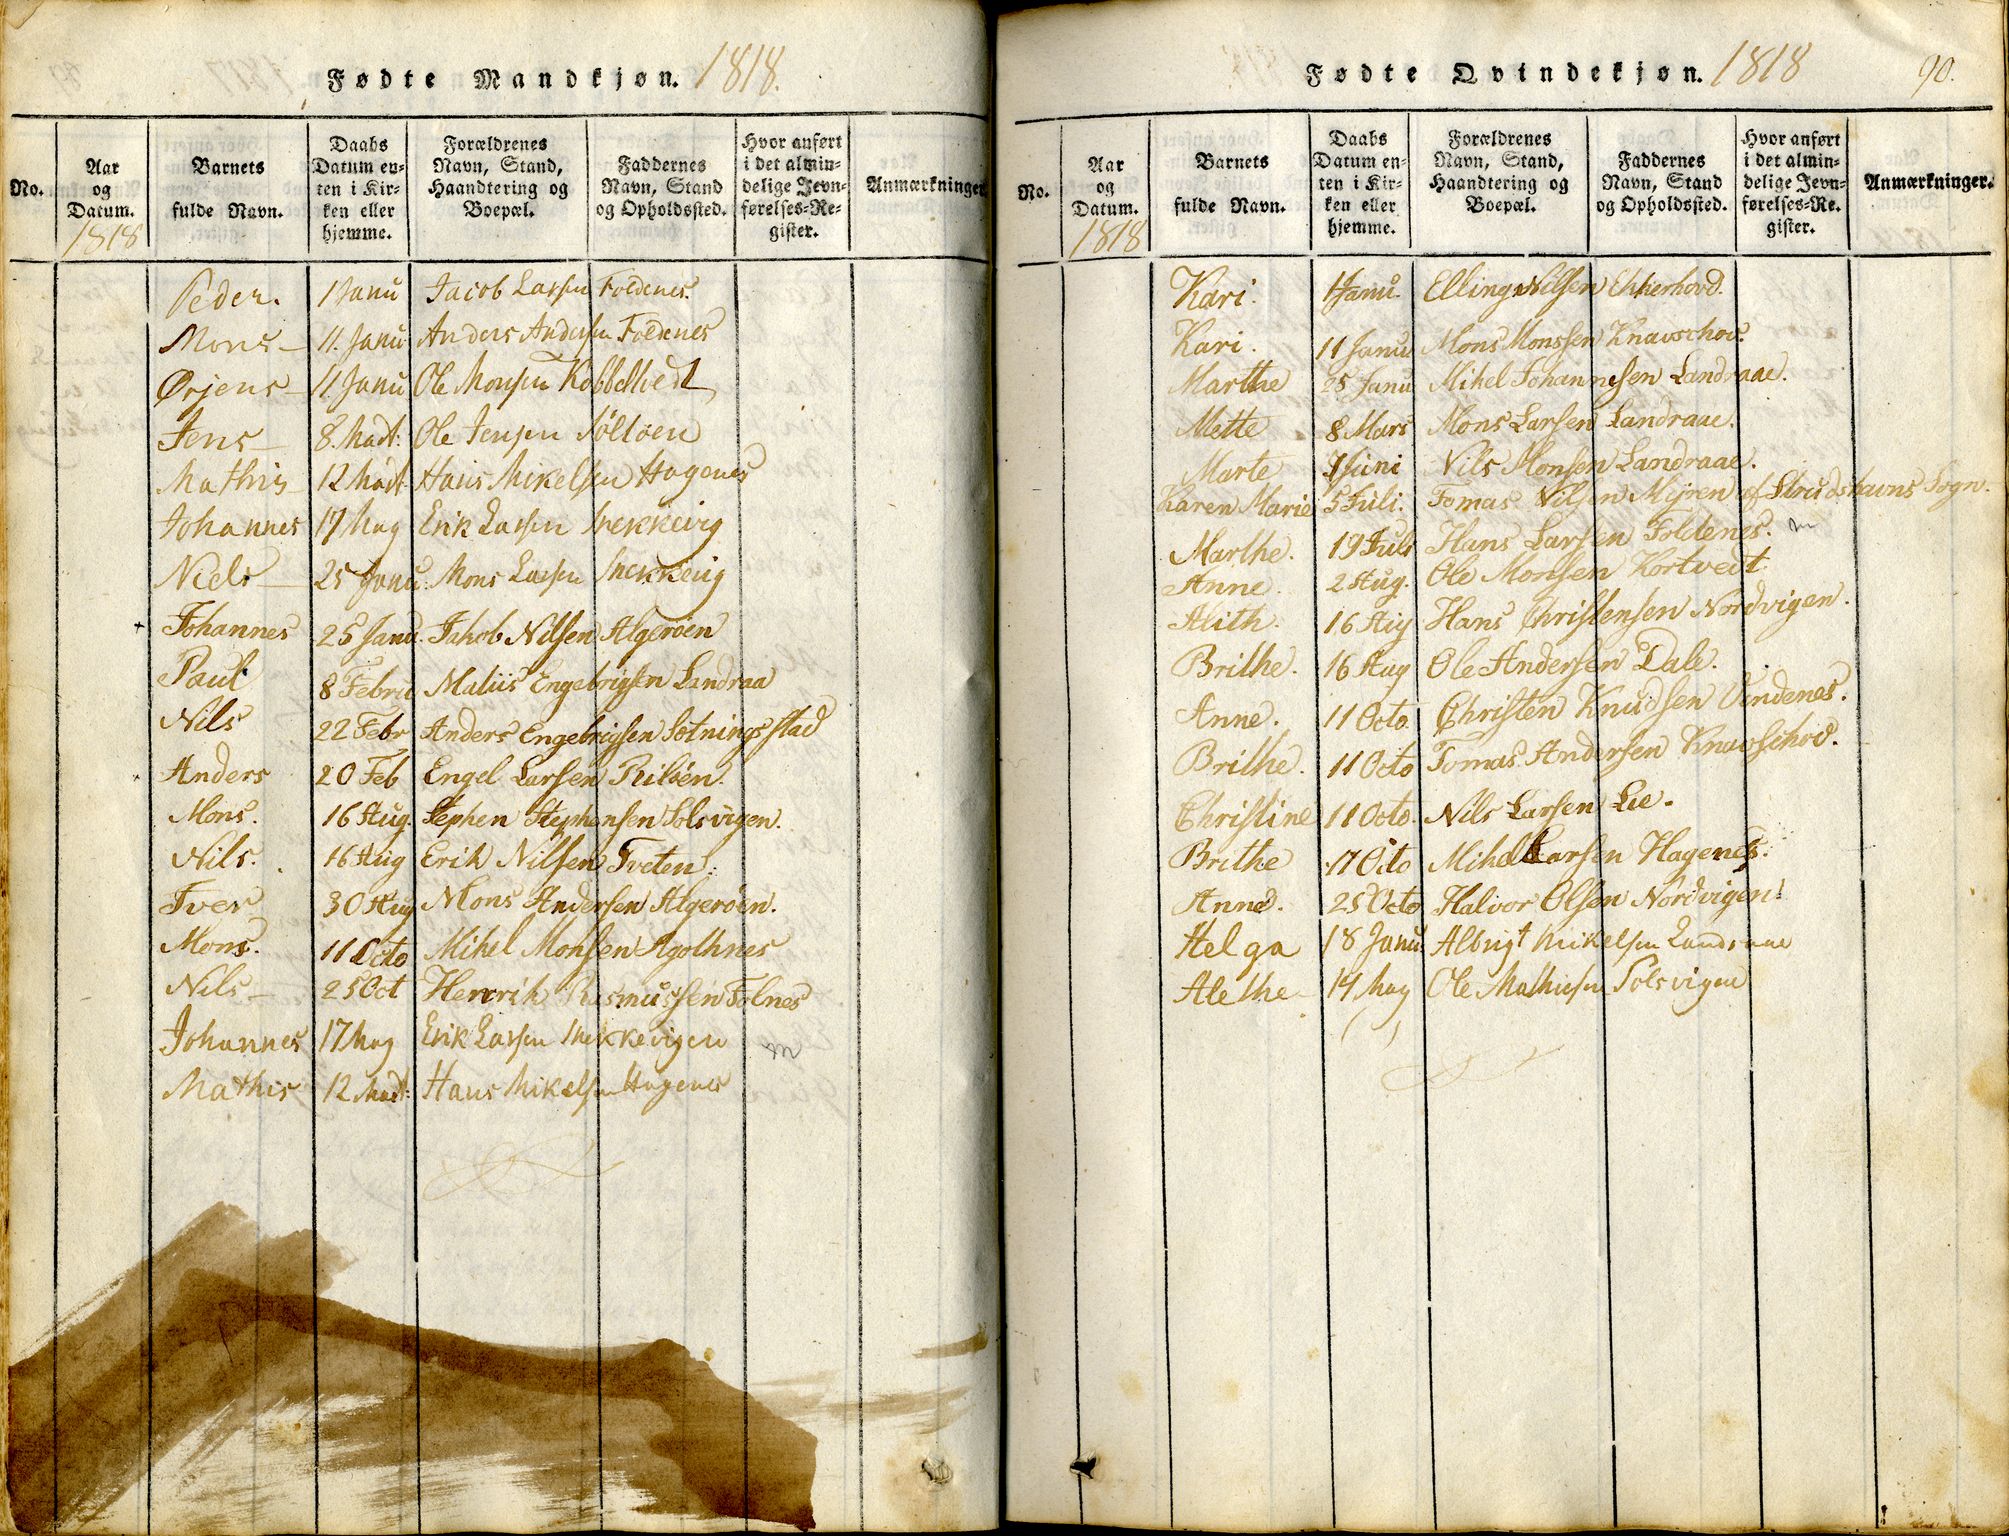 Fødte Mandkjøn. 1818.
No.
Aar og Datum. 1818
Barnets fulde Navn.
Daabs Datum enten i Kirken eller hjemme.
Forældrenes Navn, Stand, Haandtering og Boepæl.
Faddernes Navn, Stand og Opholdssted.
Hvor anført i det almindelige Jevnførelses-Register.
Anmærkninger
Peder. 1 Janu Jacob Larsen Foldenes.
Mons 11. Janu Anders Andersen Foldenes
Ørjens 11. Janu Ole Monsen Kobbeltvedt
Jens 8. Madt: Ole Jensen Söltöen
Mathis 12 Madt. Hans Mikelsen Hagenes
Johannes 17 May Erik Larsen Snekkevig
Niels 25 Janu: Mons Larsen Snekkevig
Johannes 25 Janu. Jakob Nilsen Algeröen
Paul 8 Febru Matiis Engebrigsen Landraa
Nils 22 Febr Anders Engebrigsen Sotningsstad
Anders 20 Feb Engel Larsen Rilöen.
Mons. 16 Aug. Stephen Stephensen Solsvigen.
Nils. 16 Aug Erik Nilsen Tveten.
Iver 30 Aug Mons Andersen Algeröen.
Mons. 11 Octo Mikel Monsen Agothnes
Nils 25 Oct Henrik Rasmussen Folnes
Johannes 17 May Erik Larsen Snekkevigen
Mathis 12 Madt: Hans Mikelsen Hagenes
Fødte Qvindekjøn. 1818 90.
No.
Aar og Datum. 1818
Barnets fulde Navn.
Daabs Datum enten i Kirken eller hjemme.
Forældrenes Navn, Stand, Haandtering og Boepæl.
Faddernes Navn, Stand og Opholdssted.
Hvor anført i det almindelige Jevnførelses-Register.
Anmærkninger.
Kari. 1 Janu. Elling Nilsen Ekkerhovd.
Kari. 11 Janu Mons Monssen Knavschov.
Marthe 25 Janu Mikel Johannesen Landraae.
Mette 8 Mars Mons Larsen Landraae.
Marte 7 Juni Nils Monsen Landraae.
Karen Marie 5 Juli. Tomas Nilsen Mijren af Strudshavns Sogn.
Marthe. 19 Juli Hans Larsen Foldenes.
Anne 2 Aug. Ole Monsen Kortvedt
Alith. 16 Aug Hans Christensen Nordvigen.
Brithe. 16 Aug Ole Andersen Dale.
Anne. 11 Octo. Christen Knudsen Vindenes.
Brithe. 11 Octo Tomas Andersen Knavschov.
Christine 11 Octo. Nils Larsen Lie.
Brithe 11 Octo Mikel Larsen Hagenes.
Anne. 25 Octo Halvor Olsen Nordvigen
Helga 18 Janu. Albrigt Mikelsen Landraae
Alethe 14 May Ole Mathiesen Solsvigen